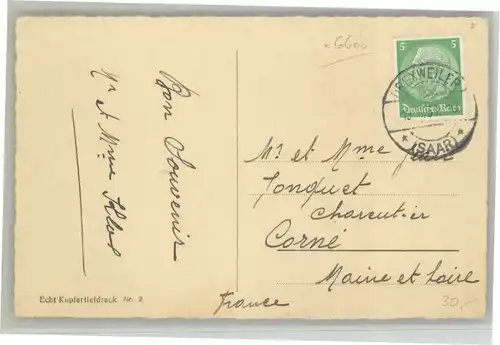 x6600
5 5
Deutsches Reich
(SAAR)
Bon Souvenir
Mr et Mme
Mr et Mme
Jonquet
Charcutier
Corné
Maine et Loire
France
30,-
Echt Kupfertiefdruck Nr. 2